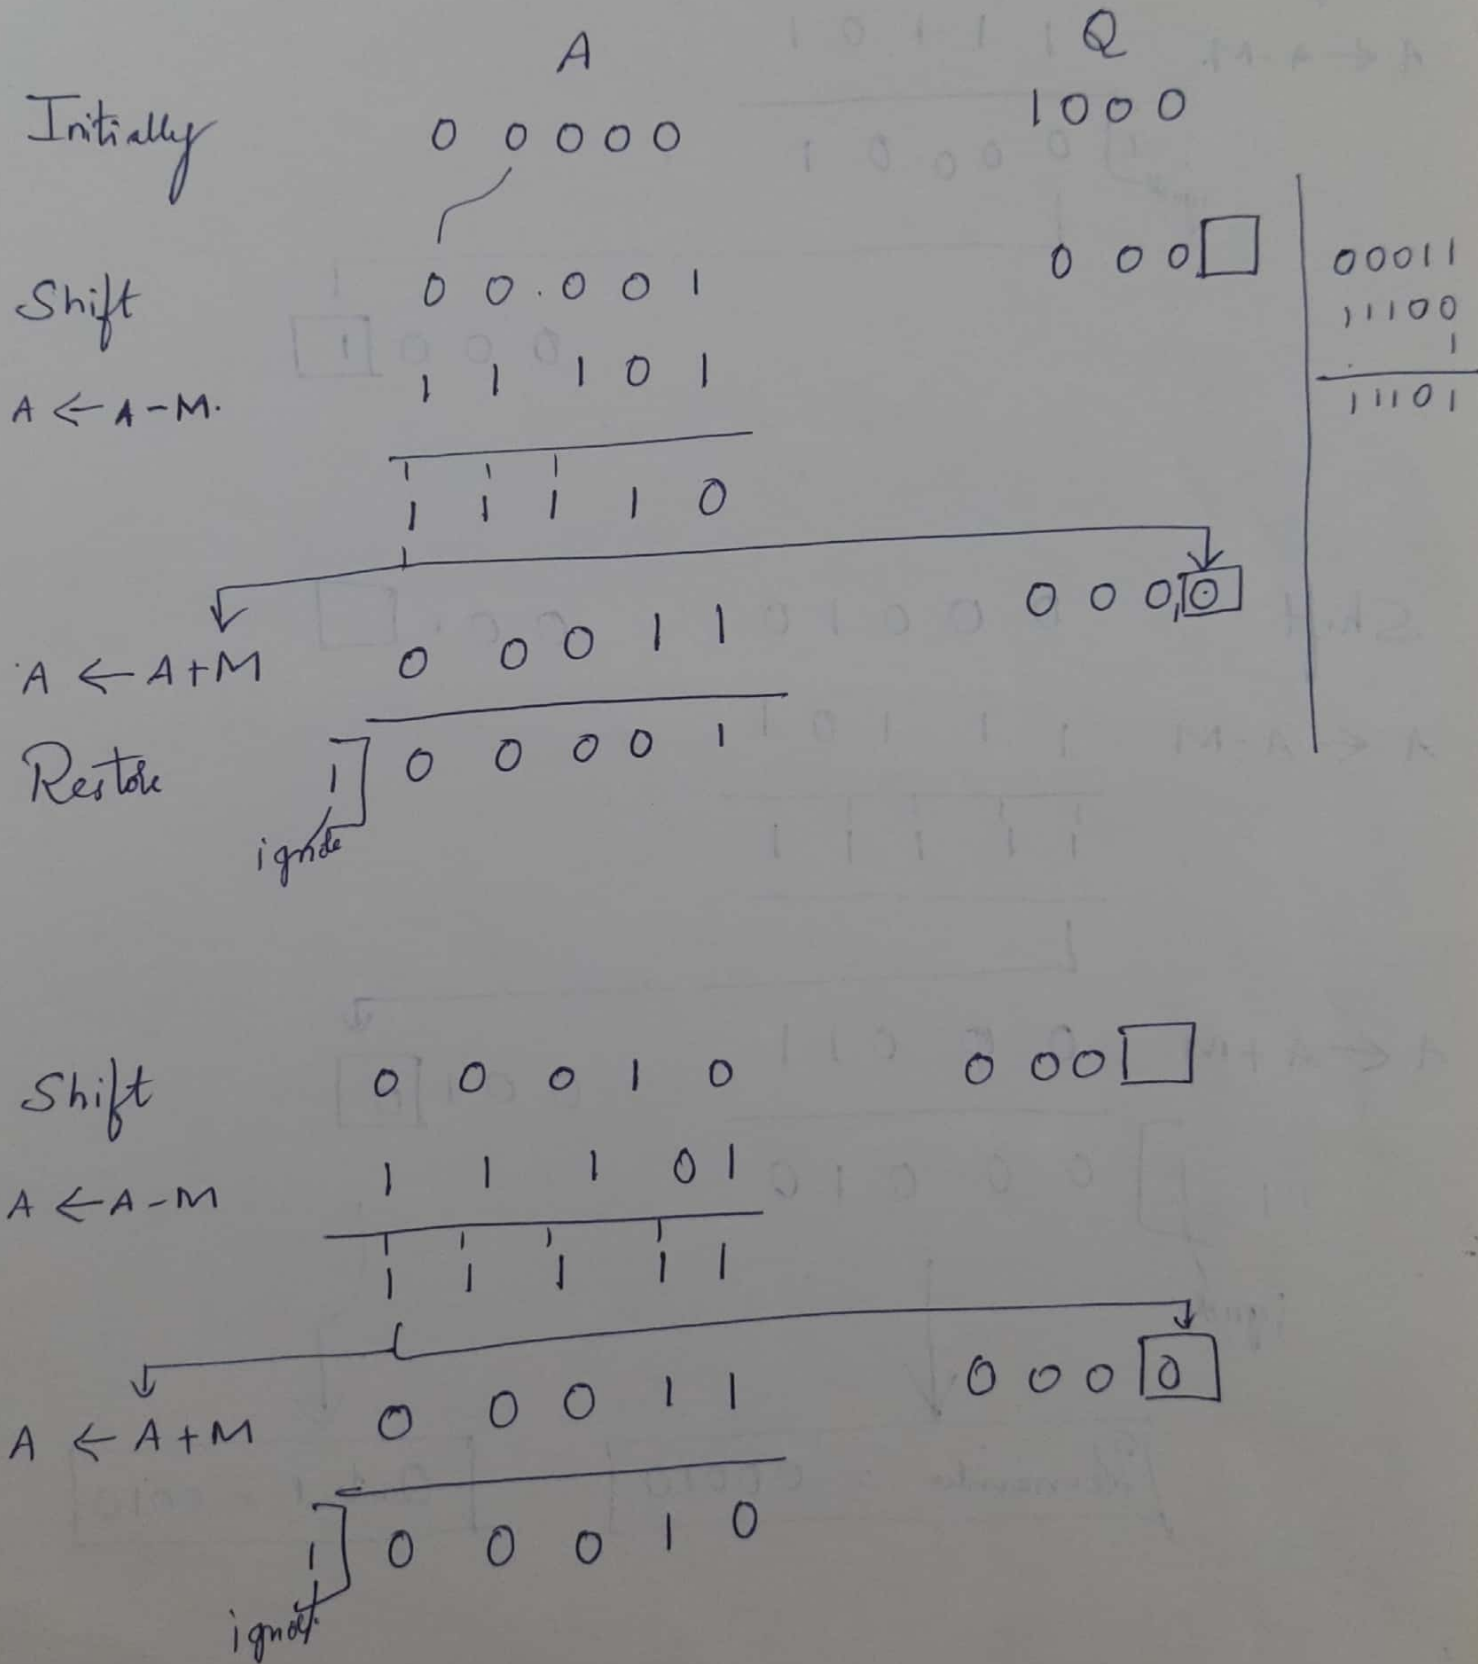 A Q
Initially 0 0 0 0 0 1 0 0 0
Shift 0 0 0 0 1 0 0 0
A ← A - M. 1 1 1 0 1
1 1 1
1 1 1 1 0
0 0 0 0
A ← A + M 0 0 0 1 1
Restore 1 0 0 0 0 1
ignore
00011
11100
1
11101
Shift 0 0 0 1 0 0 0 0
A ← A - M 1 1 1 0 1
1 1 1 1
1 1 1 1 1
0 0 0 0
A ← A + M 0 0 0 1 1
1 0 0 0 1 0
ignore